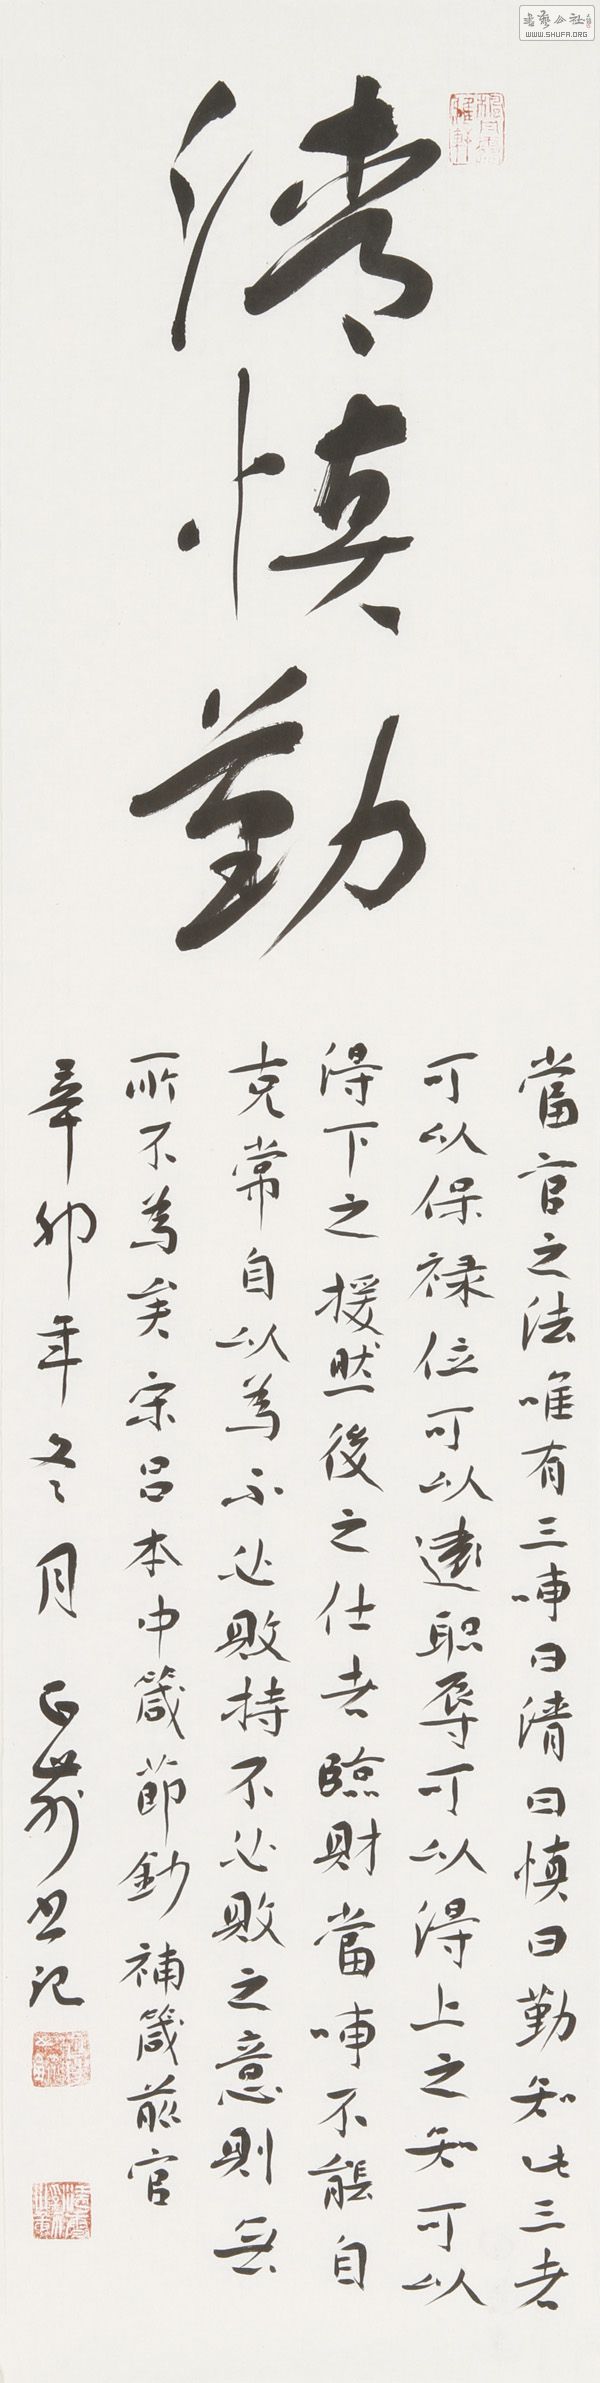 清慎勤
當官之法唯有三事曰清曰慎曰勤知此三者
可以保禄位可以遠耻辱可以得上之知可以
得下之援然後之仕者臨財當事不能自
克常自以為不必敗持不必敗之意則無
所不為矣宋吕本中箴節鈔補箴前官
辛卯年冬月正前書記
書藝公社
WWW.SHUFA.ORG